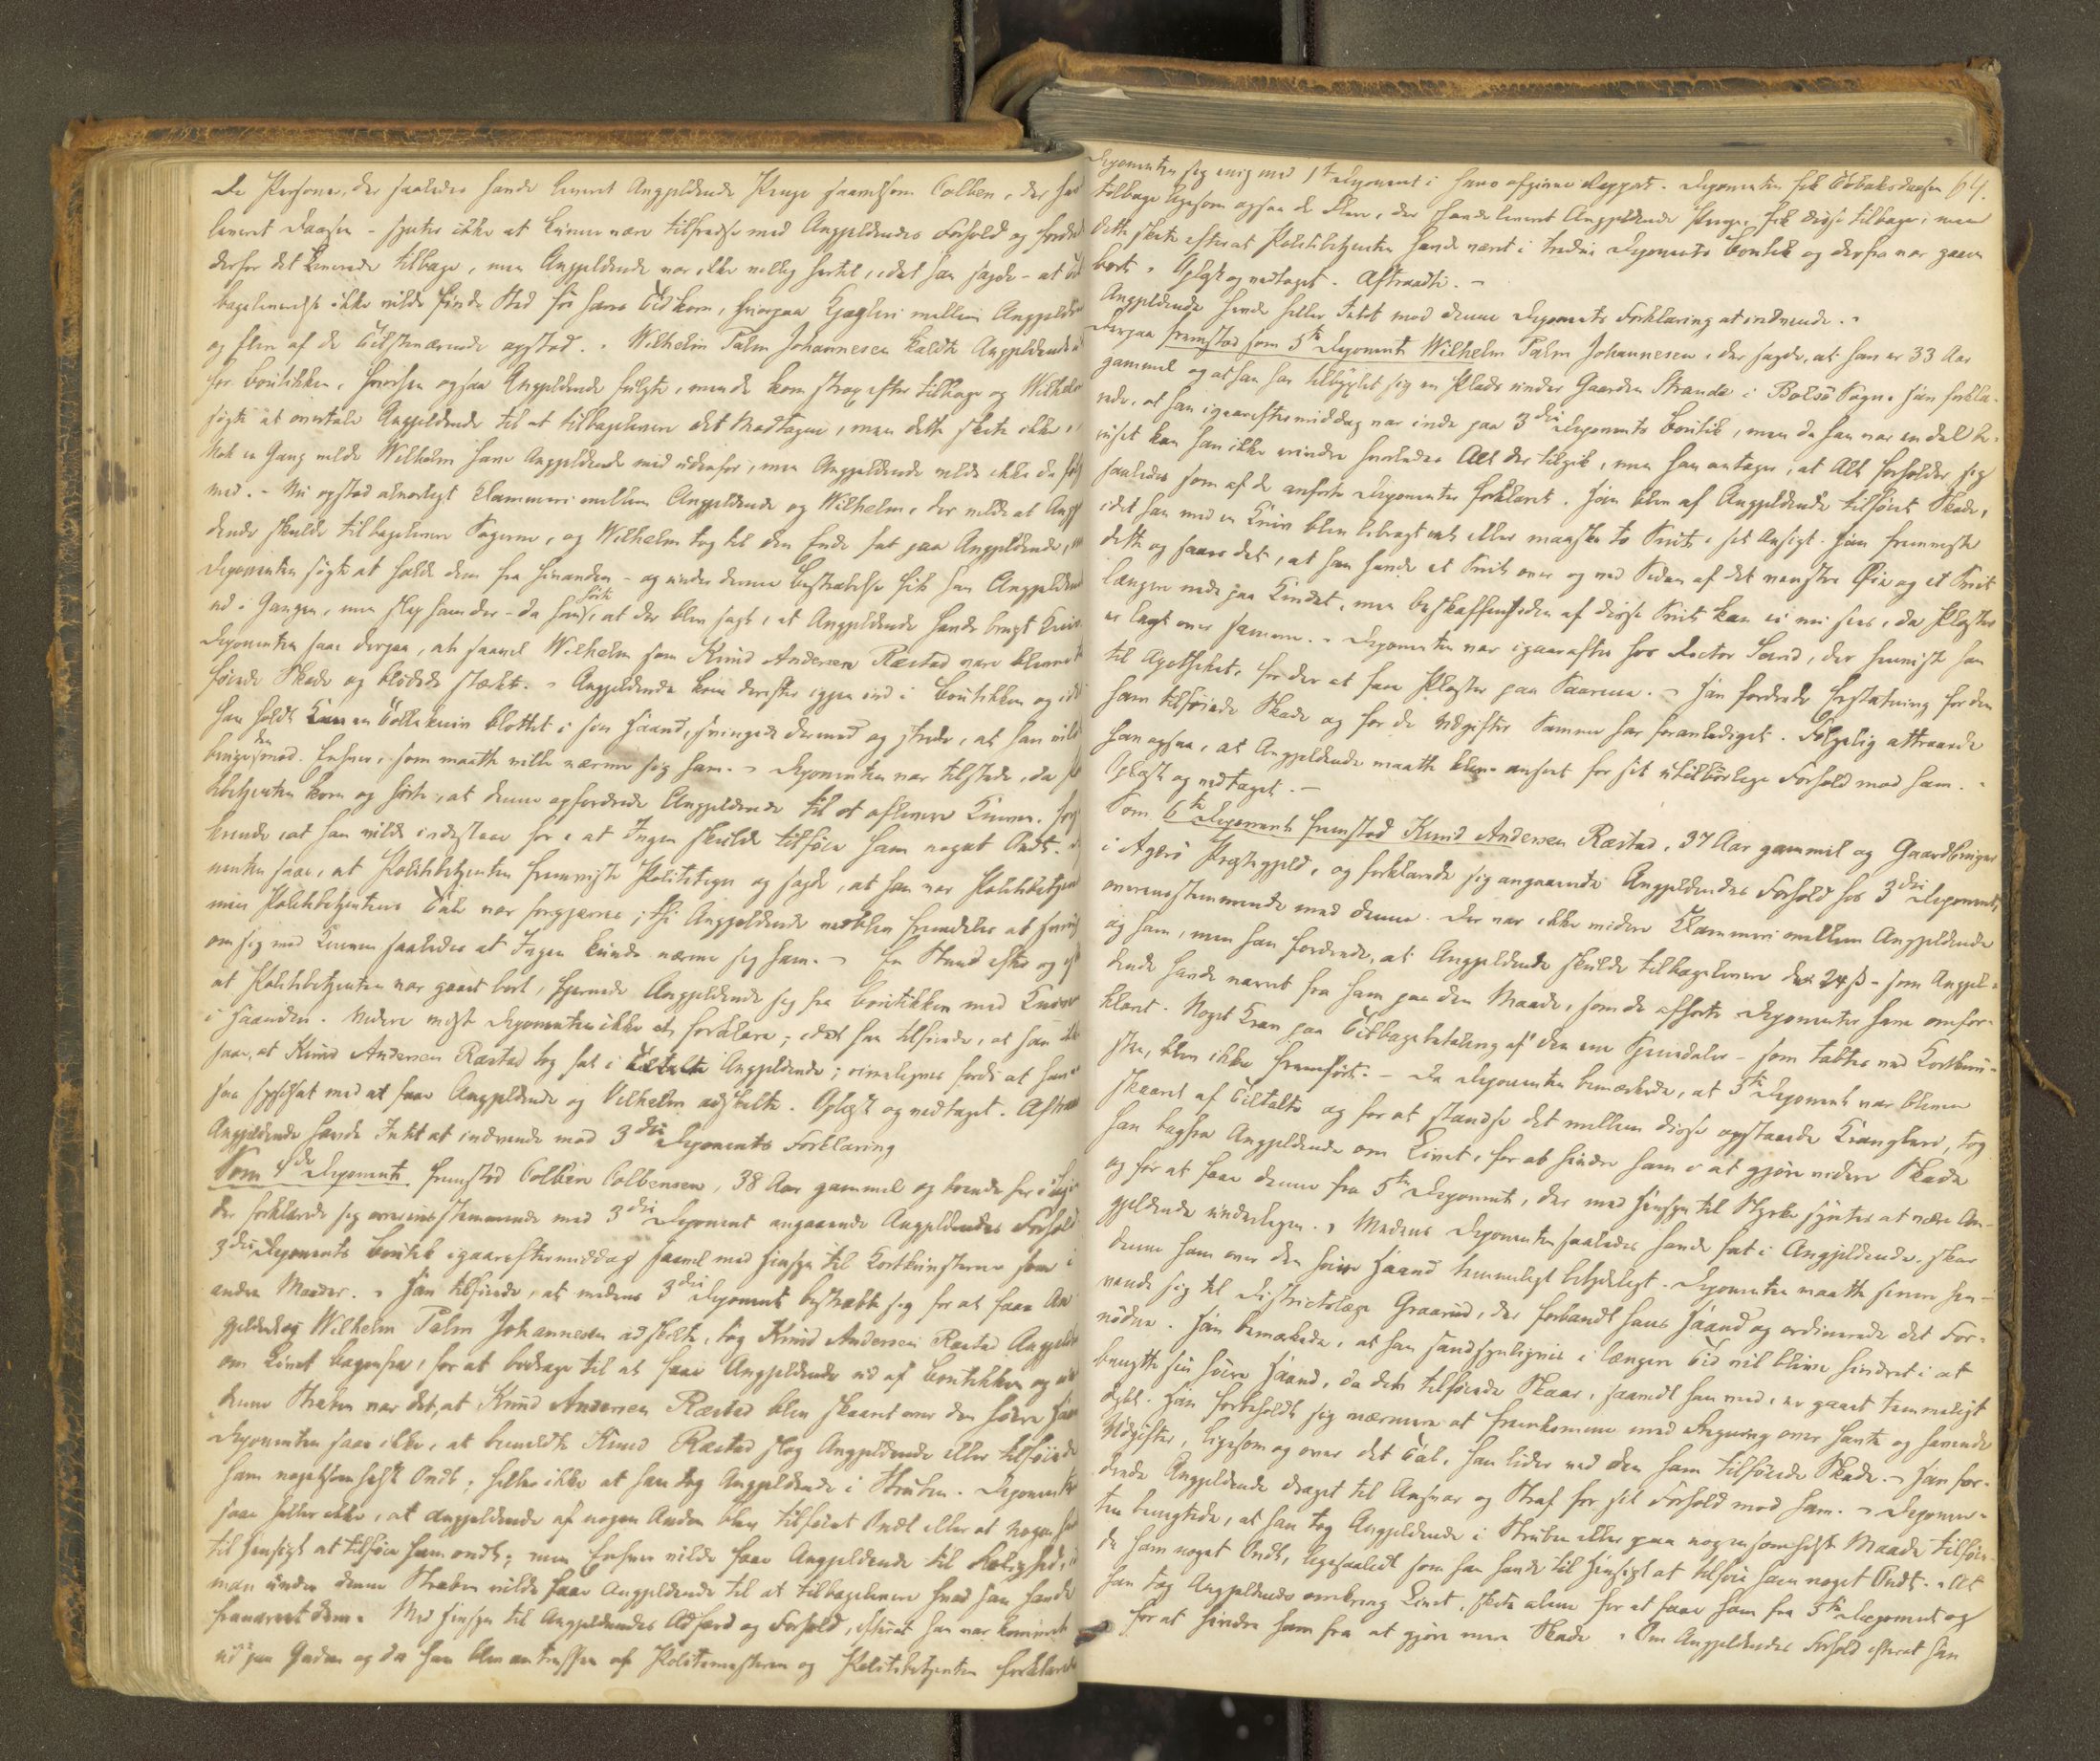 De Personer, der saaledes havde leveret Angjeldende Penge saavelsom Colben, der hav
leveret Daasen - syntes ikke at kunne være tilfredse med Angjeldendes Forhold og fordred
derfor det Leverede tilbage, men Angjeldende var ikke villig hertil, idet han sagde - at Til
bageleverelse ikke vilde finde Sted før hans Tid kom, hvorpaa Kjægleri mellem Angjelde
og flere af de Tilstedeværende opstod. - Wilhelm Palm Johannesen kaldte Angjeldende
for boutikken, hvorhen ogsaa Angjeldende fulgte, men de kom strax efter tilbage og Wilhelm
søgte at overtale Angjeldende til at tilbagelevere det Modtagne, men dette skete ikke,
Nok en Gang vilde Wilhelm have Angjeldende med udenfor, men Angjeldende vilde ikke da føl
med. - Nu opstod alvorligt Klammeri mellem Angjeldende og Wilhelm, der vilde at Angj
dende skulde tilbagelevere Sagerne, og Wilhelm tog til den Ende fat paa Angjeldende,
Deponenten søgte at holde dem fra hinanden - og under denne bestræbelse fik han Angjeldend
ud i Gangen, men slap ham der - da han hørte, at der blev sagt, at Angjeldende havde brugt Kniv.
Deponenten saae derpaa, at saavel Wilhelm som Knud Andersen Ræstad vare blevne
føiede Skade og blødede stærkt. - Angjeldende kom derefter igjen ind i boutikken og idet
han holdt en Tollekniv blottet i sin Haand, svingede dermed og ytrede, at han vild
bruge den mod Enhver, som maatte ville nærme sig ham. - Deponenten var tilstede, da Po
libetjenten kom og hørte, at denne opfordrede Angjeldende til at aflevere Kniven. for
krende at han vilde indestaae for, at Ingen skulde tilføie ham noget Ondt.
nenten saae, at Politibetjenten fremviste Politi tegn og sagde, at han var Politibetjent
men Politibetjentens Tale var forgjæves; thi Angjeldende vedblev fremdeles at sving
om sig med Kniven saaledes at Ingen kunde nærme sig ham. - En Stund efter og ef
at Politibetjenten var gaaet bort, fjernede Angjeldende sig fra boutikken med Kniven
i Haanden. Videre vidste Deponenten ikke at forklare; idet han tilføiede, at han ikke
saae, at Knud Andersen Ræstad tog fat i Angjeldende; rimeligvis fordi at han
saa sysselsat med at faae Angjeldende og Wilhelm adskilte. Oplæst og vedtaget. Aftraad
Angjeldende havde Intet at indvende mod 3die Deponents Forklaring
Som 4de Deponent fremstod Colben Colbensen, 38 Aar gammel og boende her i Byen
der forklarede sig overeensstemmende med 3die Deponent angaaende Angjeldendes Forhold
3die Deponents boutik igaareftermiddag saavel med Hensyn til Kortkunsterne som i
andre Maader. - Han tilføiede, at medens 3die Deponent bestræbte sig for at faae An
gjeldende og Wilhelm Palm Johannesen adskilte, tog Knud Andersen Ræstad Angjelde
om Livet bagenfra, for at bidrage til at faae Angjeldende ud af boutikken og und
denne Stræben var det, at Knud Andersen Ræstad blev skaaret over den høire Haan
Deponenten saae ikke, at bemeldte Knud Ræstad slog Angjeldende eller tilføiede
ham nogetsomhelst Ondt; heller ikke at han tog Angjeldende i Struben. Deponenten
saae heller ikke, at Angjeldende af nogen Anden blev tilføiet Ondt eller at Nogen hav
til Hensigt at tilføie ham ondt; men Enhver vilde faae Angjeldende til Rolighed,
man under denne Stræben vilde faae Angjeldende til at tilbagelevere hvad han havde
fravendt dem. Med Hensyn til Angjeldendes Adfærd og Forhold, efterat han var kommet
ud paa Gaden og da han blev antruffen af Politimesteren og Politibetjenten forklared
Deponenten sig enig med 1ste Deponent i hans afgivne Rapport. Deponenten fik Tobaksdaasen 64.
tilbage ligesom ogsaa de Flere, der havde leveret Angjeldende Penge, fik disse tilbage; men
dette skete efterat Politibetjenten havde været i tredie Deponents boutik og derfra var gaaen
bort. Oplæst og vedtaget. Aftraadt. -
Angjeldende havde heller Intet mod denne Deponents Forklaring at indvende. -
Derpaa fremstod som 5te Deponent Wilhelm Palm Johannesen, der sagde, at han er 33 Aar
gammel og at han har tilbyxlet sig en Plads under Gaarden Strande i Bolsø Sogn. Han forkla-
rede, at han igaareftermiddag var inde paa 3die Deponents boutik, men da han var en del be-
ruset kan han ikke erindre hvorledes Alt der tilgik, men han antager, at Alt forholder sig
saaledes som af de anførte Deponenter forklaret. Han blev af Angjeldende tilføiet Skade,
idet han med en Kniv blev bibragt eet eller maaske to Snit i sit Ansigt. Han fremviste
dette og saaes det, at han havde et Snit over og ved Siden af det venstre Øie og et Snit
længere nede paa Kindet, men beskaffenheden af disse Snit kan ei nu sees, da Plaster
er lagt over samme. - Deponenten var igaaraftes hos Doctor Sand, der henviste ham
til Apotheket, for der at faae Plaster paa Saarene. - Han fordrede Erstatning for den
ham tilføiede Skade og for de Udgifter Samme har foranlediget. Følgelig attraaede
han ogsaa, at Angjeldende maatte blive anseet for sit utilbørlige Forhold mod ham. -
Oplæst og vedtaget. -
Som 6te Deponent fremstod Knud Andersen Ræstad, 37 Aar gammel og Gaardbruger
i Agerø Præstegjeld, og forklarede sig angaaende Angjeldendes Forhold hos 3die Deponent,
overeensstemmende med denne. Der var ikke videre Klammeri mellem Angjeldende
og ham, men han fordrede, at Angjeldende skulde tilbagelevere de 24 ß - som Angjel-
dende havde narret fra ham paa den Maade, som de afhørte Deponenter have omfor-
klaret. Noget Krav paa Tilbagebetaling af den ene Speciedaler - som tabtes ved Kortkun-
sten, blev ikke fremført. - Da Deponenten bemærkede, at 5te Deponent var bleven
skaaret af Tiltalte og for at standse det mellem disse opstaaede Krangleri, tog
han bagfra Angjeldende om Livet, for at hindre ham i at gjøre videre Skade
og for at faae denne fra 5te Deponent, der med Hensyn til Styrke syntes at være An-
gjeldende underlegen. - Medens Deponenten saaledes havde fat i Angjeldende, skar
denne ham over den høire Haand temmeligt betydeligt. Deponenten maatte senere hen-
vende sig til Districtslæge Graarud, der forbandt hans Haand og ordinerede det For-
nødne. Han bemærkede, at han sandsynligviis i længere Tid vil blive hindret i at
benytte sin høire Haand, da det tilføiede Skaar, saavidt han veed, er gaaet temmeligt
dybt. Han forbeholdt sig nærmere at fremkomme med Regning over havte og havende
Udgifter, ligesom og over det Tab, han lider ved den ham tilføiede Skade. - Han for-
drede Angjeldende draget til Ansvar og Straf for sit Forhold mod ham. - Deponen-
ten benegtede, at han tog Angjeldende i Struben eller paa nogensomhelst Maade tilføie-
de ham noget Ondt, ligesaalidt som han havde til Hensigt at tilføie ham noget Ondt. - At
han tog Angjeldende omkring Livet, skete alene for at faae ham fra 5te Deponent og
for at hindre ham fra at gjøre mere Skade. Om Angjeldendes Forhold efterat han